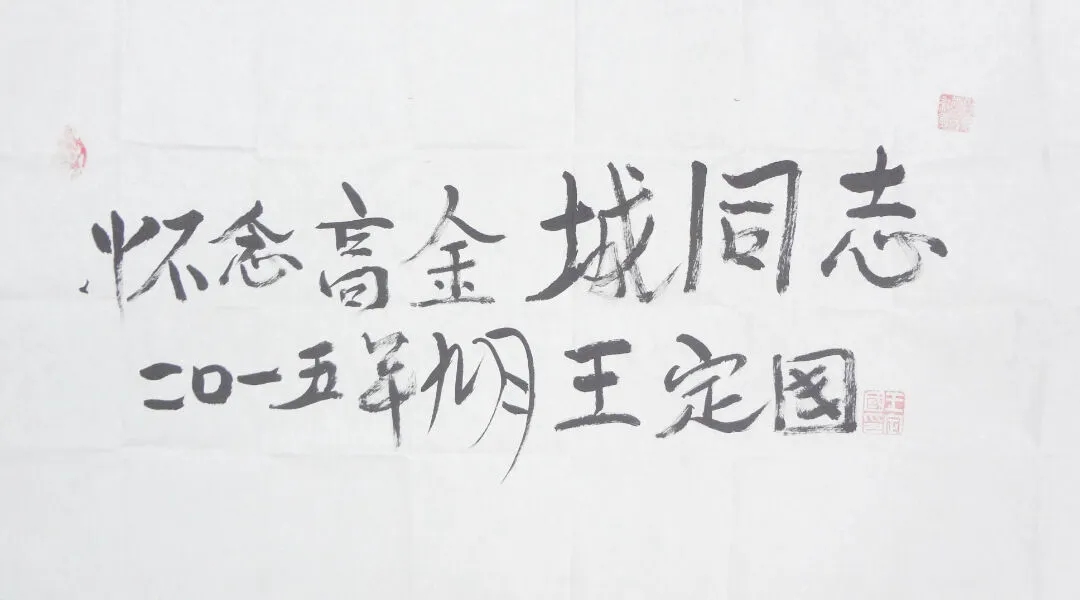 怀念高金城同志
二〇一五年九月王定国